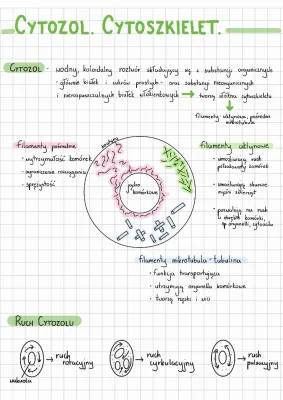 CYTOZOL. CYTOSZKIELET.
CYTOZOL - wodny, koloidalny roztwór składający się z substancji organicznych
- głównie białek i cukrów prostych - oraz substancji nieorganicznych
i nierozpuszczalnych białek włókienkowych → tworzą włókna cytoszkieletu
filamenty aktynowe, pośrednie
mikrotubule
filamenty pośrednie
• wytrzymałość komórek
• ograniczenie rozciągania
• sprężystość
jądro
komórkowe
filamenty aktynowe
• umożliwiają ruch
• umożliwiają skurcz
mięśni
• pozwalają na ruch
komórki,
filamenty mikrotubule - tubulina
• funkcja transportująca
• utrzymują organella komórkowe
• tworzą rzęski i wici
RUCH CYTOZOLU
→ ruch
rotacyjny
→ ruch
cyrkulacyjny
→ ruch
pulsacyjny
wakuola